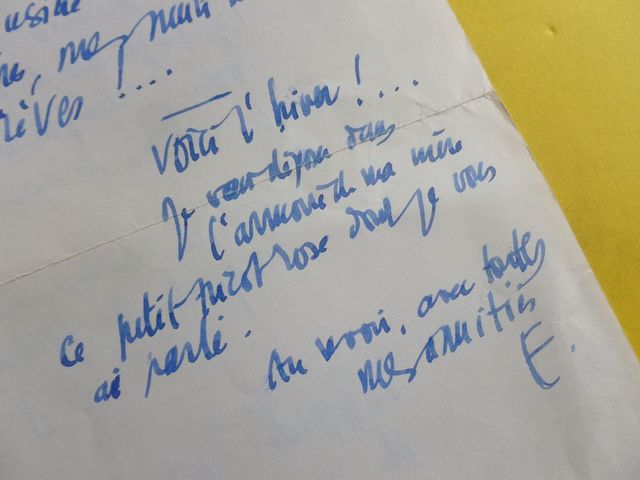 rêves !....
Voici l'hiver !....
Je dépose dans
l'armoire de ma mère
ce petit tricot rose dont je vous
ai parlé.
Au revoir, avec toutes
mes amitiés
E.